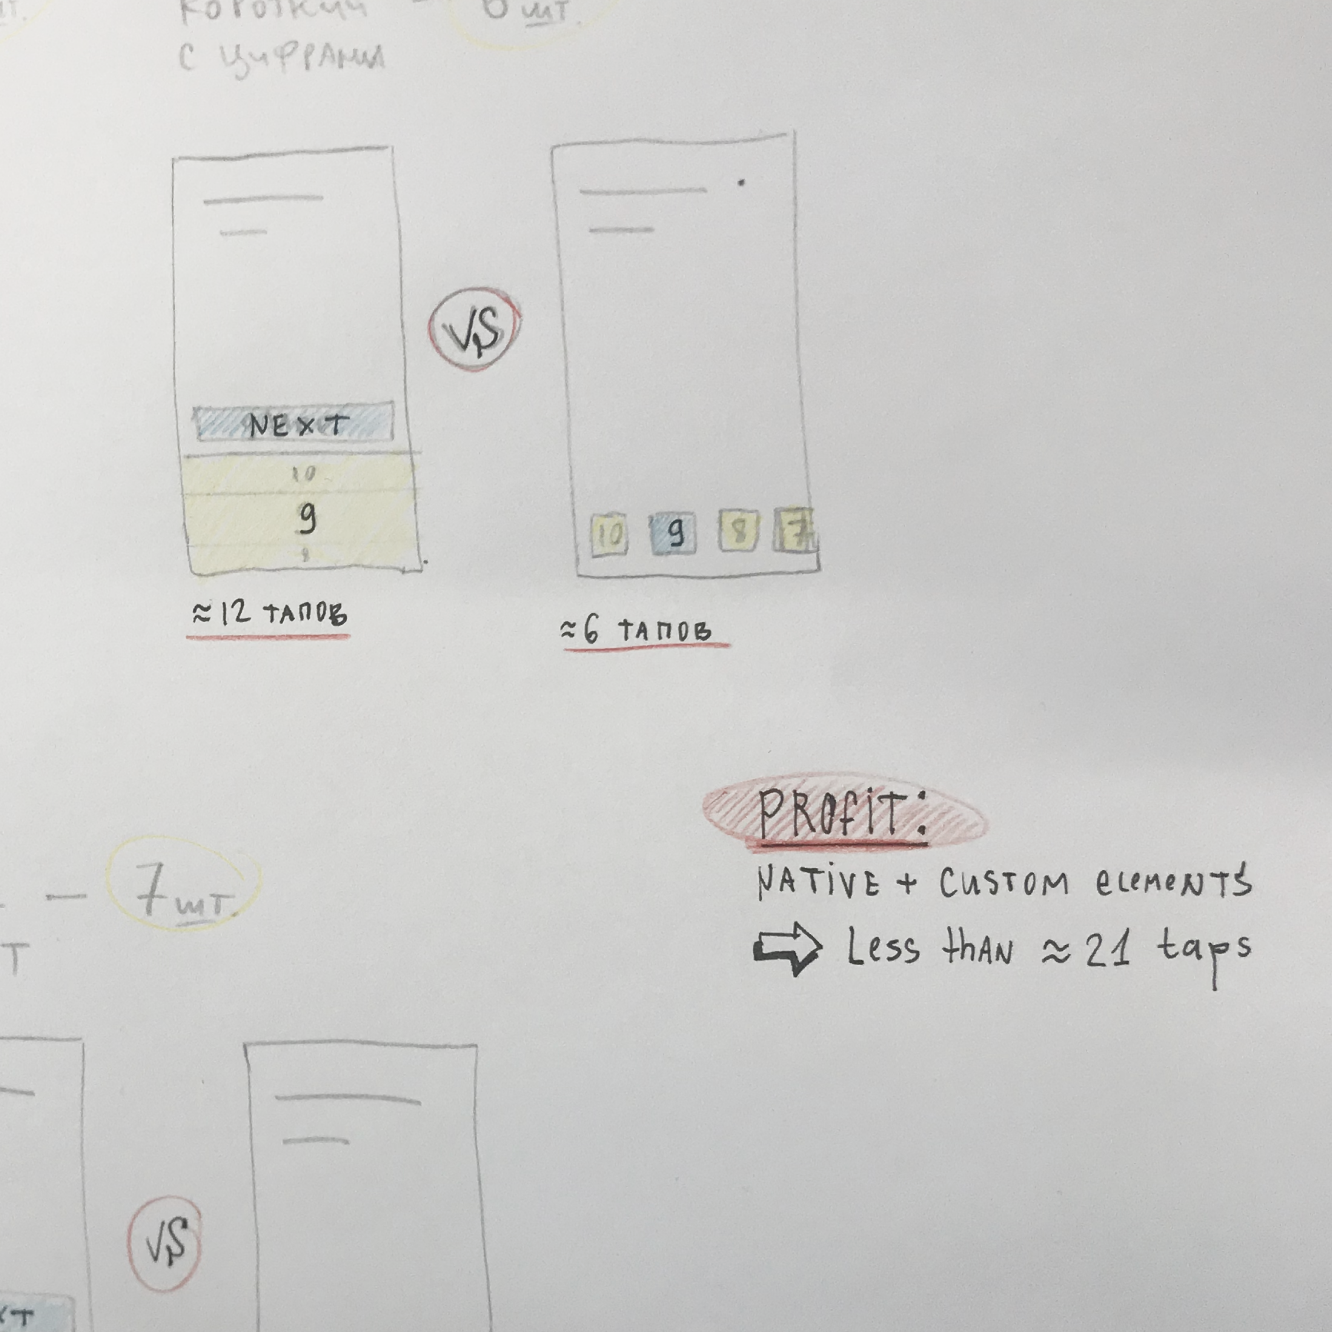 короткий - 6 шт.
с цифрами
VS
NEXT
10
9
8
10 9 8 7
≈12 тапов
≈6 тапов
PROFIT:
NATIVE + CUSTOM ELEMENTS
Less than ≈ 21 taps
— 7 шт.
т
VS
XT